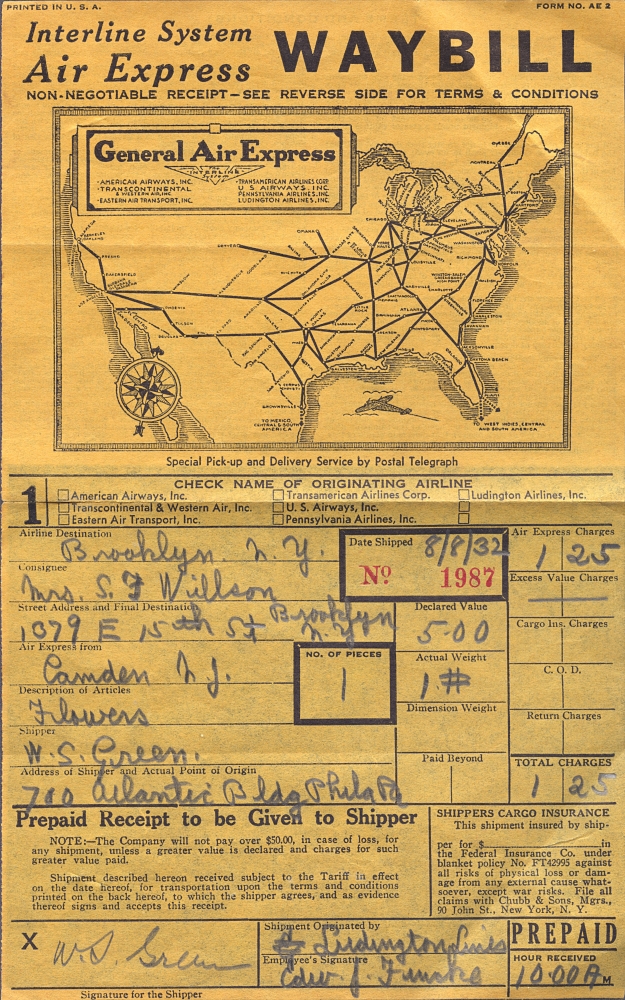 PRINTED IN U. S. A.
FORM NO. AE 2
Interline System
Air Express
WAYBILL
NON-NEGOTIABLE RECEIPT—SEE REVERSE SIDE FOR TERMS & CONDITIONS
General Air Express
INTERLINE
System
·AMERICAN AIRWAYS, INC.
·TRANSCONTINENTAL
& WESTERN AIR, INC.
·EASTERN AIR TRANSPORT, INC.
·TRANSAMERICAN AIRLINES CORP.
U S AIRWAYS, INC.
PENNSYLVANIA AIRLINES, INC.
LUDINGTON AIRLINES, INC.
QUEBEC
MONTREAL
BOSTON
CHICAGO
CLEVELAND
OMAHA
DENVER
WASHINGTON
RICHMOND
LOUISVILLE
WICHITA
FRESNO
BAKERSFIELD
PHOENIX
TUCSON
DOUGLAS
NASHVILLE
MEMPHIS
CHARLOTTE
ATLANTA
BIRMINGHAM
LITTLE ROCK
JACKSON
MONTGOMERY
CHARLESTON
SAVANNAH
JACKSONVILLE
DAYTONA BEACH
GALVESTON
BROWNSVILLE
TO MEXICO,
CENTRAL & SOUTH
AMERICA
TO WEST INDIES, CENTRAL
AND SOUTH AMERICA
Special Pick-up and Delivery Service by Postal Telegraph
1
CHECK NAME OF ORIGINATING AIRLINE
American Airways, Inc.
Transamerican Airlines Corp.
Ludington Airlines, Inc.
Transcontinental & Western Air, Inc.
U. S. Airways, Inc.
Eastern Air Transport, Inc.
Pennsylvania Airlines, Inc.
Airline Destination
Brooklyn. N. Y.
Date Shipped 8/8/32
Nº 1987
Air Express Charges
1 25
Consignee
Mrs. S. F Willson
Excess Value Charges
Street Address and Final Destination
1379 E 15th St Brooklyn
N. Y.
Declared Value
5.00
Cargo Ins. Charges
Air Express from
Camden N J.
NO. OF PIECES
1
Actual Weight
1 #
C. O. D.
Description of Articles
Flowers
Dimension Weight
Return Charges
Shipper
W. S. Green.
Paid Beyond
TOTAL CHARGES
1 25
Address of Shipper and Actual Point of Origin
700 Atlantic Bldg Phila Pa
Prepaid Receipt to be Given to Shipper
NOTE:—The Company will not pay over $50.00, in case of loss, for
any shipment, unless a greater value is declared and charges for such
greater value paid.
Shipment described hereon received subject to the Tariff in effect
on the date hereof, for transportation upon the terms and conditions
printed on the back hereof, to which the shipper agrees, and as evidence
thereof signs and accepts this receipt.
SHIPPERS CARGO INSURANCE
This shipment insured by ship-
per for $ in
the Federal Insurance Co. under
blanket policy No. FT42995 against
all risks of physical loss or dam-
age from any external cause what-
soever, except war risks. File all
claims with Chubb & Sons, Mgrs.,
90 John St., New York, N. Y.
X W. S. Green
Signature for the Shipper
Shipment Originated by
Ludington Lines
Employee's Signature
Edw. J.
PREPAID
HOUR RECEIVED
10:00 A M.